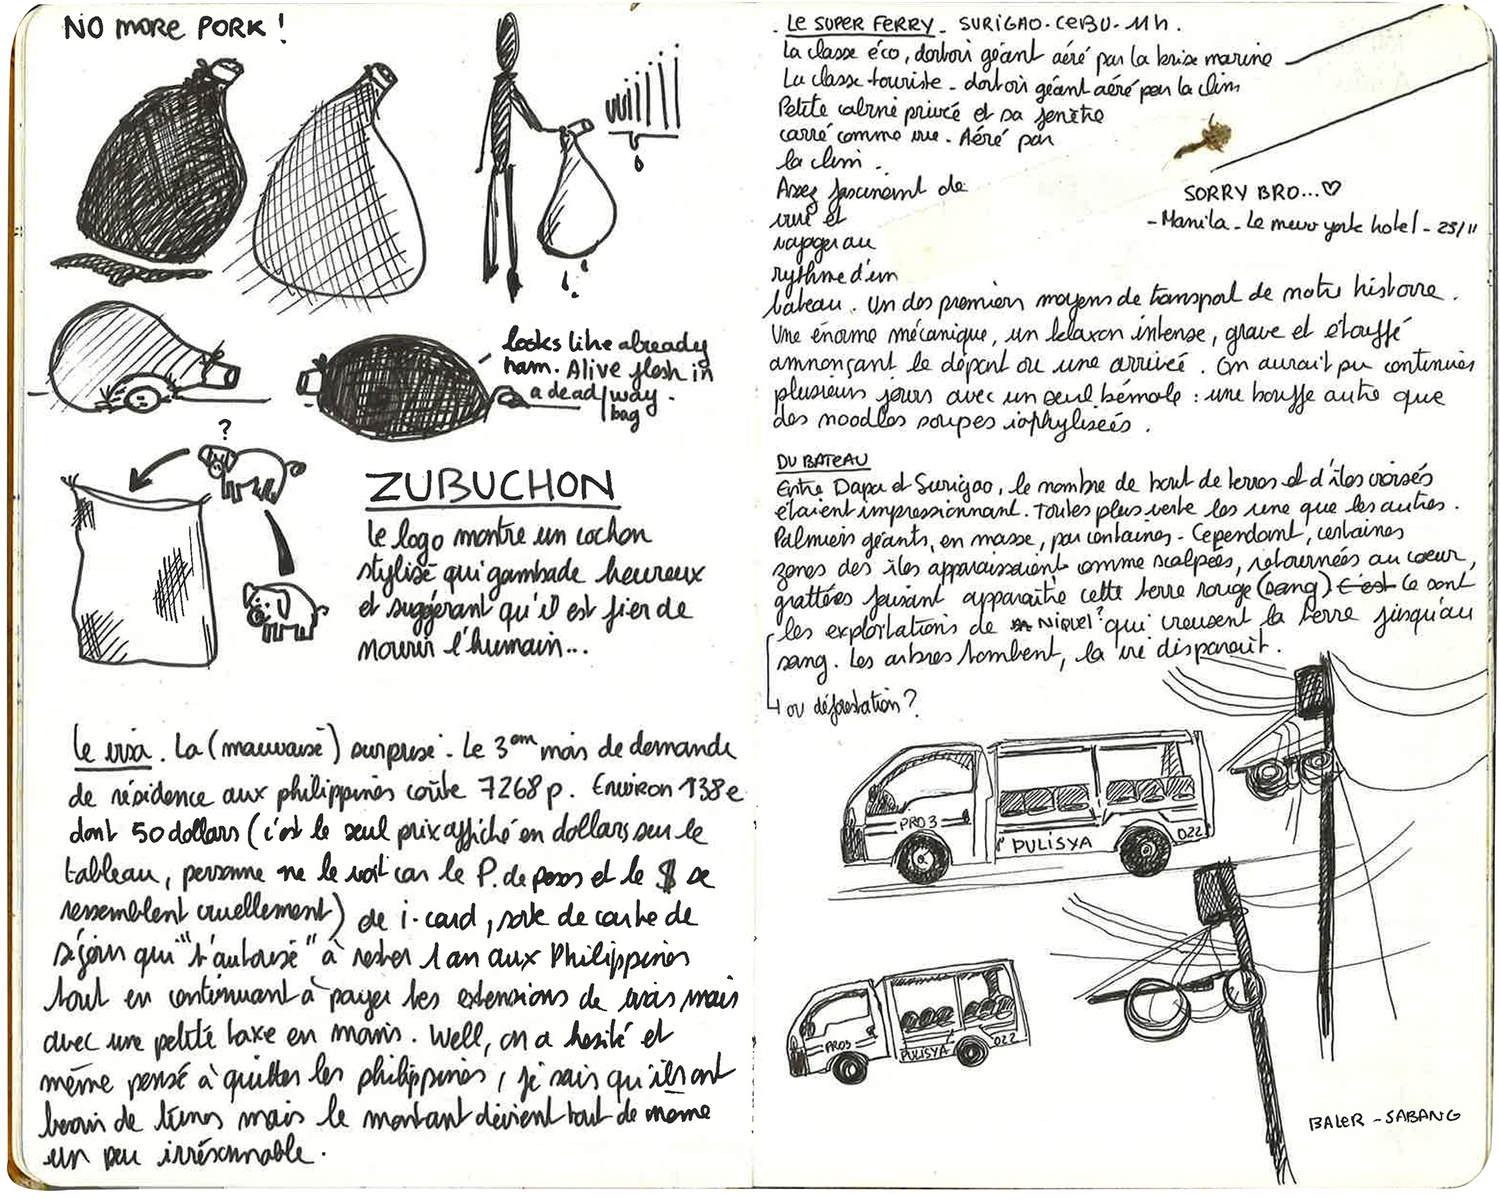 NO MORE PORK !
looks like already
ham. Alive flesh in
a dead/way.
bag
?
ZUBUCHON
Le logo montre un cochon
stylisé qui gambade heureux
et suggérant qu'il est fier de
nourrir l'humain...
Le visa. La (mauvaise) surprise. Le 3em mois de demande
de résidence aux philippines coûte 7268 p. Environ 138e
dont 50 dollars (c'est le seul prix affiché en dollars sur le
tableau, personne ne le voit car le P. de pesos et le $ se
ressemblent cruellement) de i-card, sorte de carte de
séjour qui "t'autorise" à rester 1 an aux Philippines
tout en continuant à payer tes extensions de visas mais
avec une petite taxe en moins. Well, on a hesité et
même pensé à quitter les philippines, je sais qu'ils ont
besoin de thunes mais le montant devient tout de même
un peu irrésonnable.
. LE SUPER FERRY - SURIGAO-CEBU-11h.
La classe éco, dortoir géant aéré par la brise marine
La classe touriste - dortoir géant aéré par la clim
Petite cabine privée et sa fenêtre
carré comme vue. Aéré par
la clim.
Assez fascinant de
vivre et
voyager au
rythme d'un
bateau. Un des premiers moyens de transport de notre histoire.
Une énorme mécanique, un klaxon intense, grave et étouffé
annonçant le départ ou une arrivée. On aurait pu continuer
plusieurs jours avec un seul bémole : une bouffe autre que
des noodles soupes iophylisées.
SORRY BRO...♡
- Manila - Le new york hotel - 25/11
DU BATEAU
Entre Dapa et Surigao, le nombre de bout de terres et d'îles croisés
étaient impressionnant. Toutes plus verte les une que les autres.
Palmiers géants, en masse, par centaines. Cependant, certaines
zones des îles apparaissaient comme scalpées, retournées au coeur,
grattées faisant apparaître cette terre rouge (sang) C'est Ce sont
les exploitations de NIQUEL? qui creusent la terre jusqu'au
sang. Les arbres tombent, la vie disparait.
ou déforestation ?
PRO 3
PULISYA
022
PRO3
PULISYA
022
BALER - SABANG